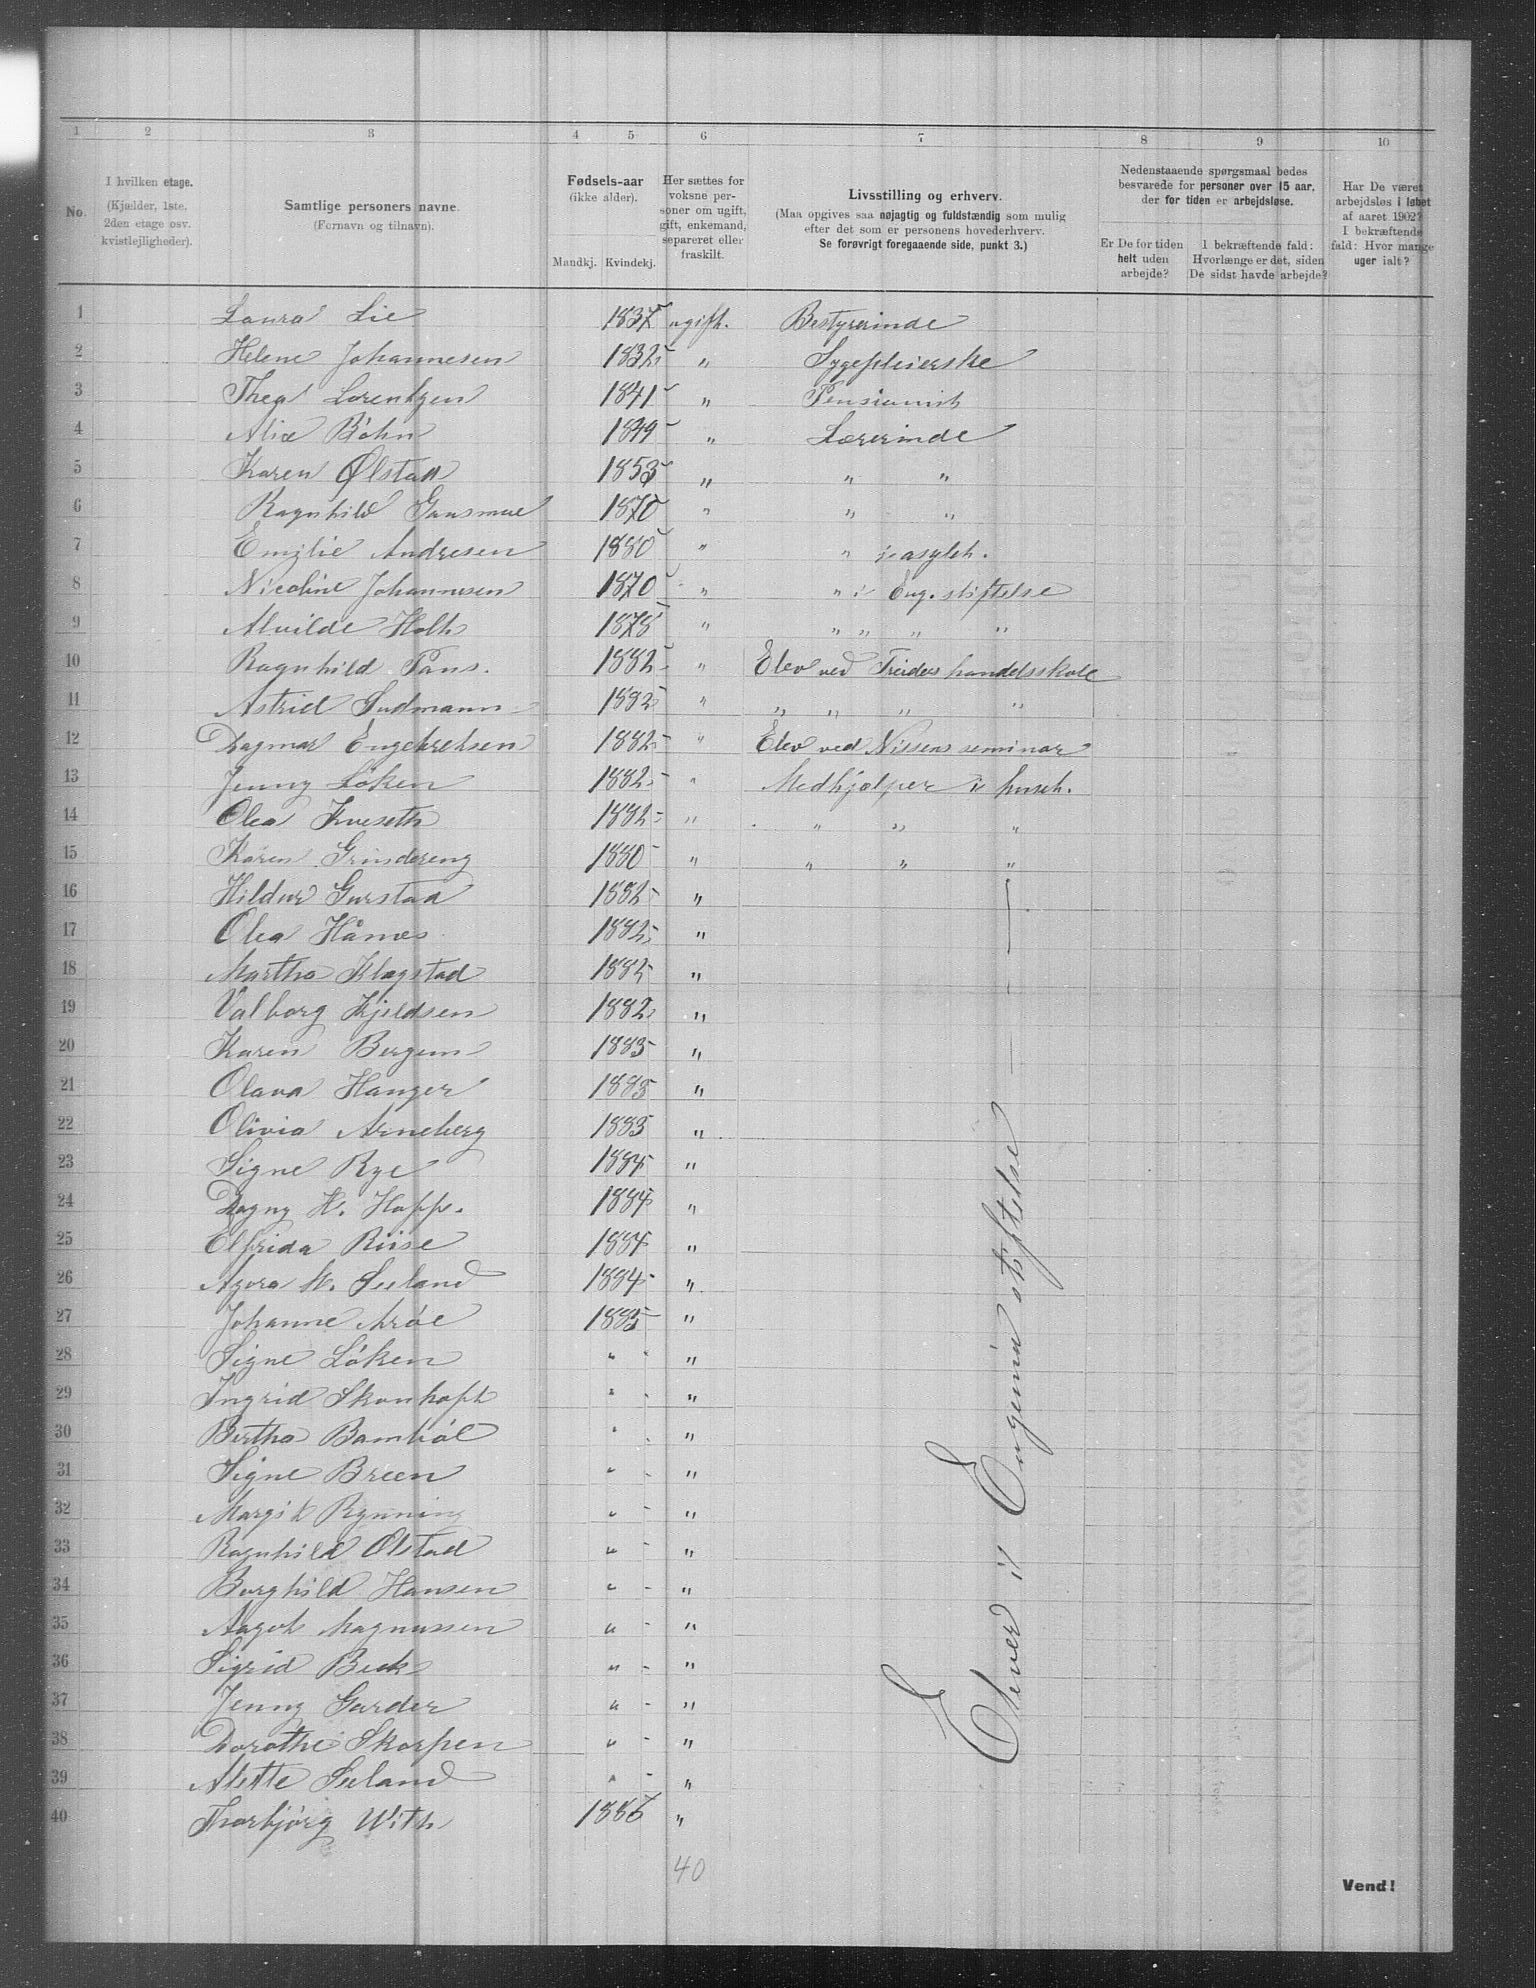 1 2 3 4 5 6 7 8 9 10
No.
I hvilken etage.
(Kjælder, 1ste,
2den etage osv.
kvistlejligheder).
Samtlige personers navne.
(Fornavn og tilnavn).
Fødsels-aar
(ikke alder).
Mandkj. Kvindekj.
Her sættes for
voksne per-
soner om ugift,
gift, enkemand,
separeret eller
fraskilt.
Livsstilling og erhverv.
(Maa opgives saa nøjagtig og fuldstændig som mulig
efter det som er personens hovederhverv.
Se forøvrigt foregaaende side, punkt 3.)
Nedenstaaende spørgsmaal bedes
besvarede for personer over 15 aar,
der for tiden er arbejdsløse.
Er De for tiden
helt uden
arbejde?
I bekræftende fald:
Hvorlænge er det, siden
De sidst havde arbejde?
Har De været
arbejdsløs i løbet
af aaret 1902?
I bekræftende
fald: Hvor mange
uger ialt?
1 Laura Lie 1837 ugift. Bestyrerinde
2 Helene Johannesen 1832 " Sygepleierske
3 Thea Lorentzen 1841 " Pensionist
4 Alice Böhn 1849 " Lærerinde
5 Karen Ølstad 1853 " " "
6 Ragnhild 1870 " " "
7 Emilie Andresen 1880 " " i asylet.
8 Nicoline Johannesen 1870 " " i Eug. stiftelse
9 Alvilde Holth 1878 " " " " "
10 Ragnhild Pans. 1882 " Elev ved Treiders handelsskole
11 Astrid Sudmann 1882 " " " " "
12 Dagmar Engebretsen 1882 " Elev ved Nissens seminar
13 Jenny Löken 1882 " Medhjælper i hush.
14 Olea Kveseth 1882 " " " "
15 Karen Grindereng 1880 " " " "
16 Hildur Gurstad 1882 "
17 Olea Hånæs 1882 "
18 Martha Klægstad 1882 "
19 Valborg Kjeldsen 1882 "
20 Karen Bergum 1883 "
21 Olava Hanger 1883 "
22 Olivia Arneberg 1883 "
23 Signe Rye 1884 "
24 Dagny H. Hopp. 1884 "
25 Elfrida Riise 1884 "
26 Agora M. Seeland 1884 "
27 Johanne Aröe 1885 "
28 Signe Löken " - "
29 Ingrid Skonhoft " - "
30 Bertha Bamböl " - "
31 Signe Breen " - "
32 Margit Rynning " - "
33 Ragnhild Olstad " - "
34 Borghild Hansen " - "
35 Aagot Magnussen " - "
36 Sigrid Beck " - "
37 Jenny Garder " - "
38 Dorothe Skorpen " - "
39 Alette Seeland " - "
40 Thorbjörg With 1886 "
Elever i Eugenia stiftelse
40
Vend!